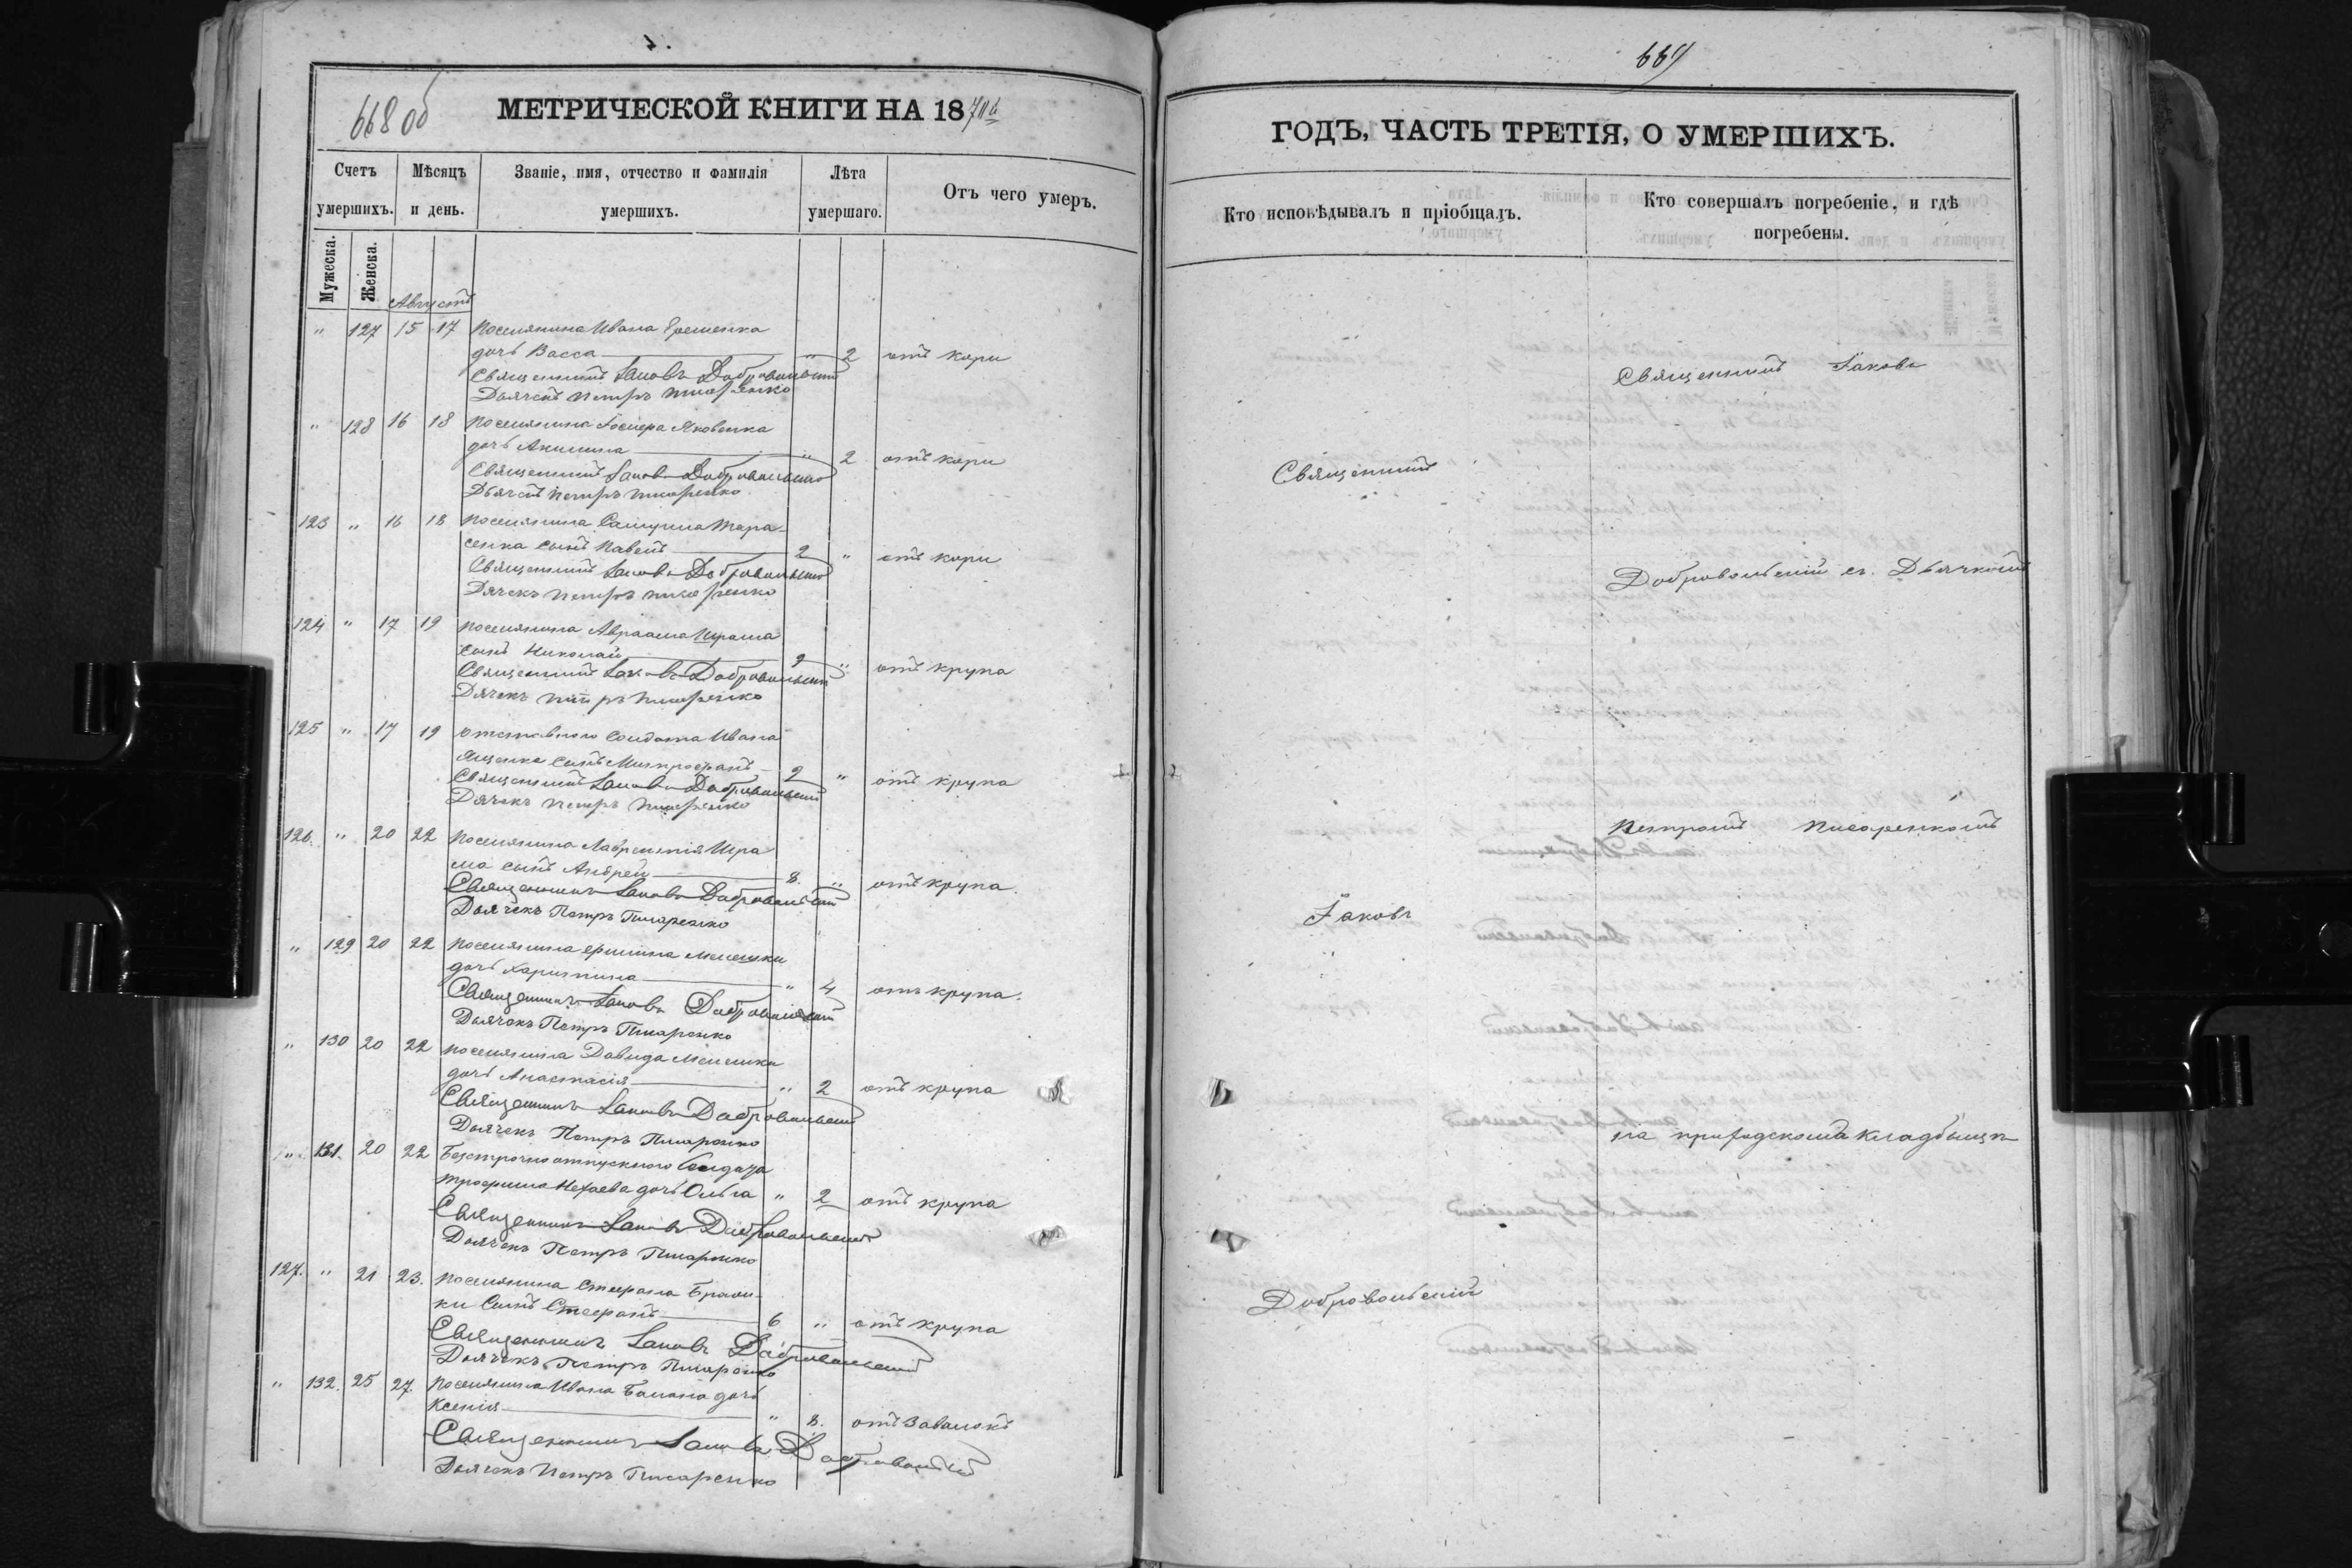 668 об
МЕТРИЧЕСКОЙ КНИГИ НА 18
Счетъ умершихъ.
Мѣсяцъ и день.
Званіе, имя, отчество и фамилія умершихъ.
Лѣта умершаго.
Отъ чего умеръ.
Мужеска.
Женска.
Августъ
" 127 15 17 Поселянина Ивана
дочь Васса " 2 отъ кори
Священникъ Іаковъ Добровольскій
Дьячекъ Петръ Писаренко
" 128 16 18 Поселянина Яковенка
дочь Акилина " 2 отъ кори
Священникъ Іаковъ Добровольскій
Дьячекъ Петръ Писаренко
123 " 16 18 Поселянина Самуила Тара-
сенка сынъ Павелъ 2 " отъ кори
Священникъ Іаковъ Добровольскій
Дячекъ Петръ Писаренко
124 " 17 19 Поселянина Авраама
сынъ Николай 9 " отъ крупа
Священникъ Іаковъ Добровольскій
Дячекъ Петръ Писаренко
125 " 17 19 Отставного Солдата Ивана
Яценка сынъ Митрофанъ 2 " отъ крупа
Священникъ Іаковъ Добровольскій
Дячекъ Петръ Писаренко
126. " 20 22 Поселянина Лаврентія
сынъ Андрей 8. " отъ крупа.
Священникъ Іаковъ Добровольскій
Дьячекъ Петръ Писаренко
" 129 20 22 Поселянина
дочь Харитина " 4 отъ крупа.
Священникъ Іаковъ Добровольскій
Дьячекъ Петръ Писаренко
" 130 20 22 Поселянина Давида
дочь Анастасія " 2 отъ крупа
Священникъ Іаковъ Добровольскій
Дьячекъ Петръ Писаренко
" 131. 20 22 Безсрочно отпускного Солдата
Трофима Нехаева дочь Ольга " 2 отъ крупа
Священникъ Іаковъ Добровольскій
Дьячекъ Петръ Писаренко
127. " 21 23. Поселянина Стефана
Сынъ Стефанъ 6 " отъ крупа
Священникъ Іаковъ Добровольскій
Дьячекъ Петръ Писаренко
" 132. 25 27. Поселянина Ивана дочь
Ксенія " 8. отъ Завалокъ
Священникъ Іаковъ Добровольскій
Дьячекъ Петръ Писаренко
669
ГОДЪ, ЧАСТЬ ТРЕТІЯ, О УМЕРШИХЪ.
Кто исповѣдывалъ и пріобщалъ.
Кто совершалъ погребеніе, и гдѣ
погребены.
Священникъ Іаковъ
Священникъ
Добровольскій съ Дьячкомъ
Петромъ Писаренкомъ
Іаковъ
на приходскомъ кладбищѣ
Добровольскій